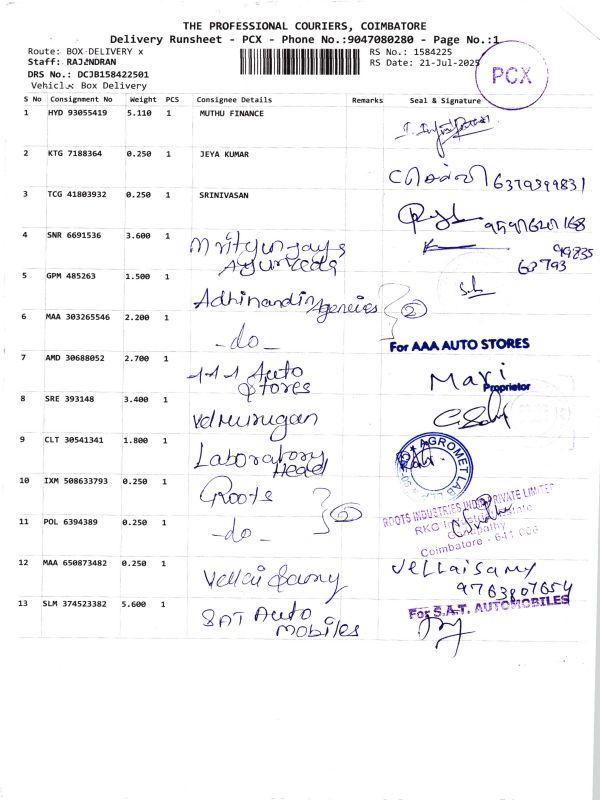 THE PROFESSIONAL COURIERS, COIMBATORE
Delivery Runsheet - PCX - Phone No.:9047080280 - Page No.:1
Route: BOX DELIVERY x
RS No.: 1584225
Staff: RAJENDRAN
RS Date: 21-Jul-2025
PCX
DRS No.: DCJB158422501
Vehicle: Box Delivery
S No Consignment No Weight PCS Consignee Details Remarks Seal & Signature
1 HYD 93055419 5.110 1 MUTHU FINANCE
2 KTG 7188364 0.250 1 JEYA KUMAR
6379399831
3 TCG 41803932 0.250 1 SRINIVASAN
4 SNR 6691536 3.600 1 Mrityunjay's
Ayurveda
99835
63793
5 GPM 485263 1.500 1 Adhinandin Agencies
2
6 MAA 303265546 2.200 1 -do-
For AAA AUTO STORES
7 AMD 30688052 2.700 1 AAA Auto
Stores
Mari
Proprietor
8 SRE 393148 3.400 1 Velmurugan
9 CLT 30541341 1.800 1 Laboratory
Head
AGROMET LAB
10 IXM 508633793 0.250 1 Groots
2
ROOTS INDUSTRIES INDIA PRIVATE LIMITED
11 POL 6394389 0.250 1 -do-
RKG
Ganapathy
Coimbatore - 641 006
12 MAA 650873482 0.250 1 Vellai Samy
Vellaisamy
9763807654
13 SLM 374523382 5.600 1 SAT Auto
Mobiles
For S.A.T. AUTOMOBILES